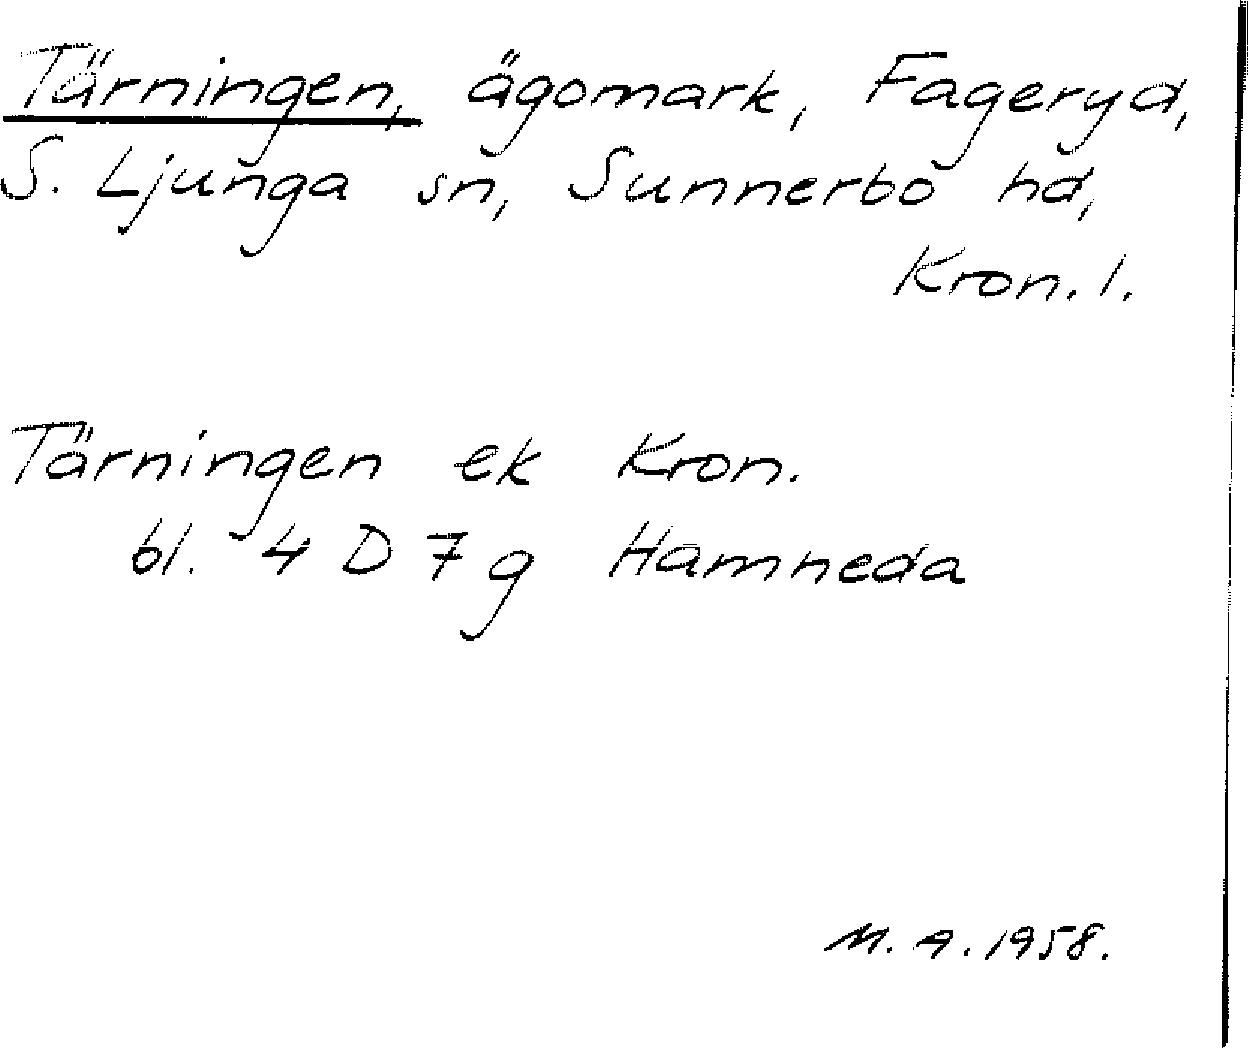 Tärningen, ägomark, Fageryd,
S. Ljunga sn, Sunnerbo hd,
Kron. l.
Tärningen ek Kron.
bl. 4 D 7 g Hamneda
M. A. 1958.